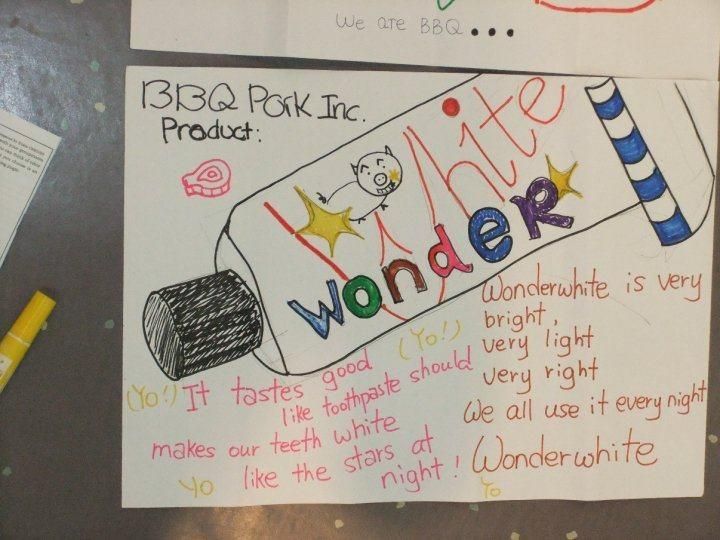 We are BBQ...
BBQ Pork Inc.
Product:
White
wonder
Wonderwhite is very
bright,
very light
very right
We all use it every night
Wonderwhite
Yo
(Yo!) It tastes good (Yo!)
like toothpaste should
makes our teeth white
Yo like the stars at
night!